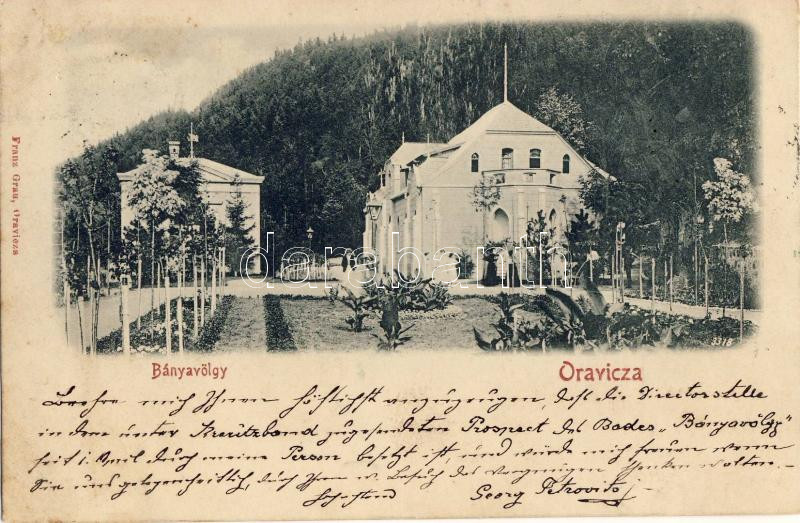 Franz Grau, Oravicza
darabanth
3318
Bányavölgy
Oravicza
Beehre mich Ihnen höflichst anzuzeigen, daß die Directorstelle
in dem unter Kreuzband zugesendeten Prospect des Bades „Bányavölgy"
seit 1. April durch meine Person besetzt ist, und würde mich freuen wenn
Sie uns gelegenheitlich, durch Ihren w. Besuch das Vergnügen schenken wollten.
Georg Petrovits